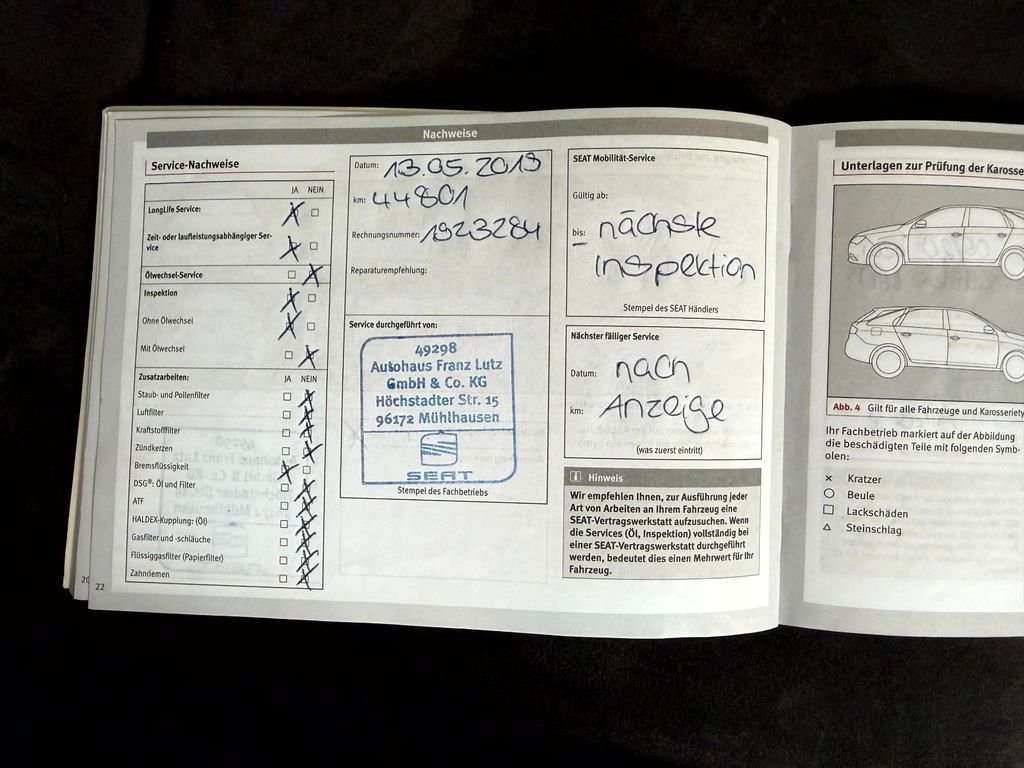 Nachweise
Service-Nachweise
JA NEIN
LongLife Service:
Zeit- oder laufleistungsabhängiger Ser-
vice
Ölwechsel-Service
Inspektion
Ohne Ölwechsel
Mit Ölwechsel
Zusatzarbeiten: JA NEIN
Staub- und Pollenfilter
Luftfilter
Kraftstofffilter
Zündkerzen
Bremsflüssigkeit
DSG®: Öl und Filter
ATF
HALDEX-Kupplung: (Öl)
Gasfilter und -schläuche
Flüssiggasfilter (Papierfilter)
Zahnriemen
20
22
Datum: 13.05.2019
km: 44801
Rechnungsnummer: 1923284
Reparaturempfehlung:
Service durchgeführt von:
49298
Autohaus Franz Lutz
GmbH & Co. KG
Höchstadter Str. 15
96172 Mühlhausen
SEAT
Stempel des Fachbetriebs
SEAT Mobilität-Service
Gültig ab:
bis: nächste
Inspektion
Stempel des SEAT Händlers
Nächster fälliger Service
Datum: nach
km: Anzeige
(was zuerst eintritt)
Hinweis
Wir empfehlen Ihnen, zur Ausführung jeder
Art von Arbeiten an Ihrem Fahrzeug eine
SEAT-Vertragswerkstatt aufzusuchen. Wenn
die Services (Öl, Inspektion) vollständig bei
einer SEAT-Vertragswerkstatt durchgeführt
werden, bedeutet dies einen Mehrwert für Ihr
Fahrzeug.
Unterlagen zur Prüfung der Karosse
Abb. 4 Gilt für alle Fahrzeuge und Karosseriety
Ihr Fachbetrieb markiert auf der Abbildung
die beschädigten Teile mit folgenden Symb-
olen:
Kratzer
Beule
Lackschäden
Steinschlag